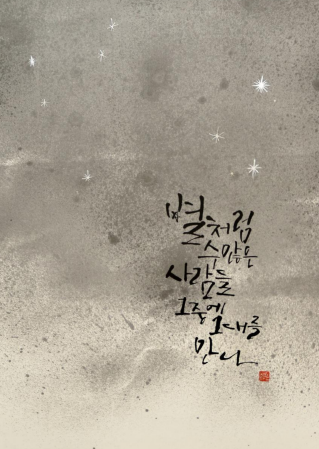 별처럼
수많은
사람들
그중에
그대를
만나